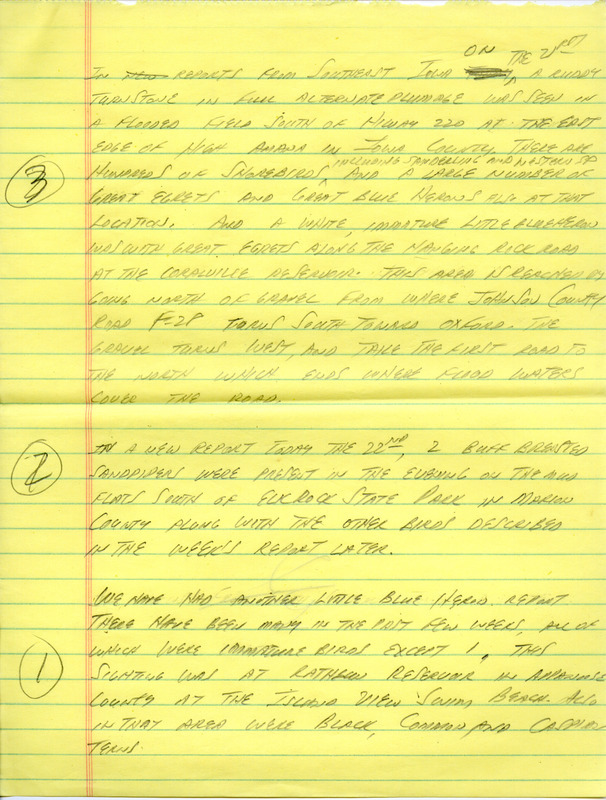 ON THE 21ST
IN NEW REPORTS FROM SOUTHEAST IOWA , A RUDDY
TURNSTONE IN FULL ALTERNATE PLUMAGE WAS SEEN IN
A FLOODED FIELD SOUTH OF HIWAY 220 AT THE EAST
EDGE OF HIGH AMANA IN IOWA COUNTY. THERE ARE
INCLUDING SANDERLING AND WESTERN SP
③ HUNDREDS OF SHOREBIRDS, AND A LARGE NUMBER OF
GREAT EGRETS AND GREAT BLUE HERONS ALSO AT THAT
LOCATION. AND A WHITE, IMMATURE LITTLE BLUE HERON
WAS WITH GREAT EGRETS ALONG THE HANGING ROCK ROAD
AT THE CORALVILLE RESERVOIR. THIS AREA IS REACHED BY
GOING NORTH OF GRAVEL FROM WHERE JOHNSON COUNTY
ROAD F-28 TURNS SOUTH TOWARD OXFORD. THE
GRAVEL TURNS WEST, AND TAKE THE FIRST ROAD TO
THE NORTH WHICH ENDS WHERE FLOOD WATERS
COVER THE ROAD.
② IN A NEW REPORT TODAY THE 22ND, 2 BUFF BREASTED
SANDPIPERS WERE PRESENT IN THE EVENING ON THE MUD
FLATS SOUTH OF ELK ROCK STATE PARK IN MARION
COUNTY ALONG WITH THE OTHER BIRDS DESCRIBED
IN THE WEEK'S REPORT LATER.
WE HAVE HAD ANOTHER LITTLE BLUE HERON REPORT
THERE HAVE BEEN MANY IN THE PAST FEW WEEKS, ALL OF
① WHICH WERE IMMATURE BIRDS EXCEPT 1. THIS
SIGHTING WAS AT RATHBUN RESERVOIR IN APPANOOSE
COUNTY AT THE ISLAND VIEW SWIM BEACH. ALSO
IN THAT AREA WERE BLACK, COMMON AND CASPIAN
TERNS.